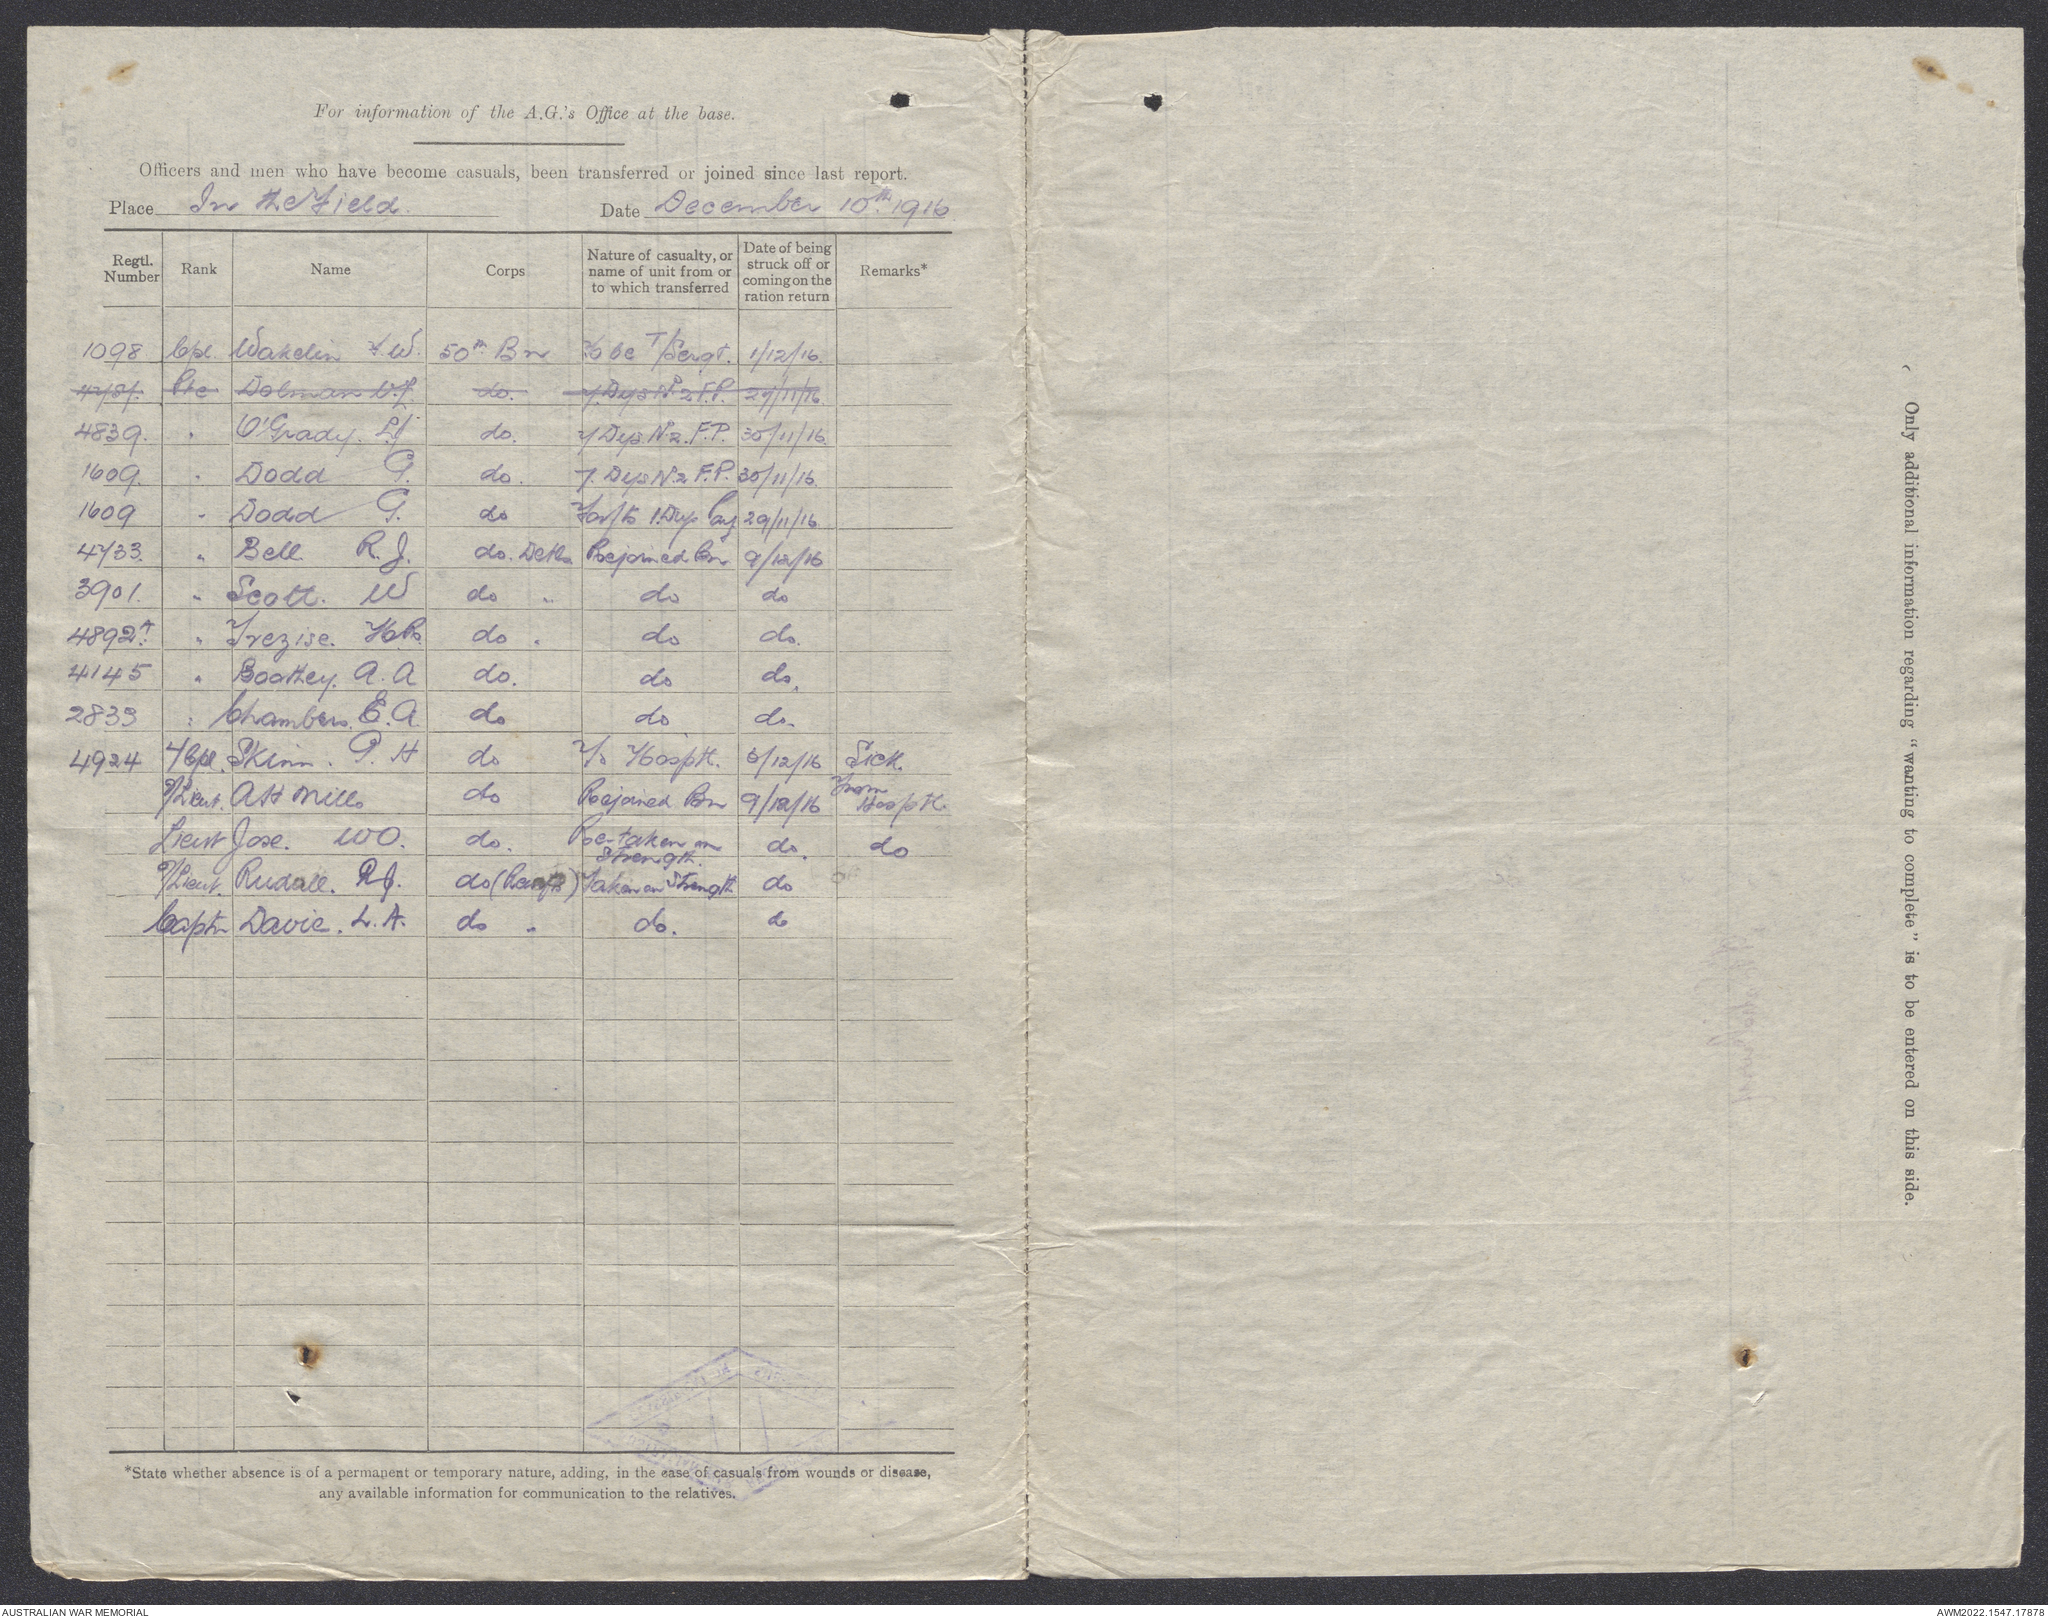 For information of the A.G.'s Office at the base.
Officers and men who have become casuals, been transferred or joined since last report.
Place In the Field. Date December 10th 1916.
Regtl. Number Rank Name Corps Nature of casualty, or name of unit from or to which transferred Date of being struck off or coming on the ration return Remarks*
1098 Cpl. Wakelin F.W. 50th Bn To be T/Sergt. 1/12/16.
Pte Dolman W.J. do. 7 Dys No 2 F.P. 29/11/16.
4839. " O'Grady. do. 7 Dys No 2. F.P. 30/11/16.
1609. " Dodd G. do. 7. Dys No 2 F.P. 30/11/16.
1609 " Dodd G. do 1 Dys Pay 29/11/16
4733. " Bell R.J. do. Details Rejoined Bn 9/12/16
3901. " Scott. W do " do do
4892A. " Trezise. do " do do.
4145 " Boothey. A.A do. do do.
2833 " Chambers. E.A. do do do.
4924 Skinn. P.H do To Hospth. 5/12/16 Sick.
2/Lieut. A H Mills do Rejoined Bn 9/12/16 From Hospth.
Lieut Jose. W O. do. Re-taken on Strength. do. do
2/Lieut. Rudall. R.J. do (Reinfts) Taken on Strength do
Captn Davie. L.A. do " do. do
*State whether absence is of a permanent or temporary nature, adding, in the case of casuals from wounds or disease,
any available information for communication to the relatives.
Only additional information regarding "wanting to complete" is to be entered on this side.
AUSTRALIAN WAR MEMORIAL
AWM2022.1547.17878